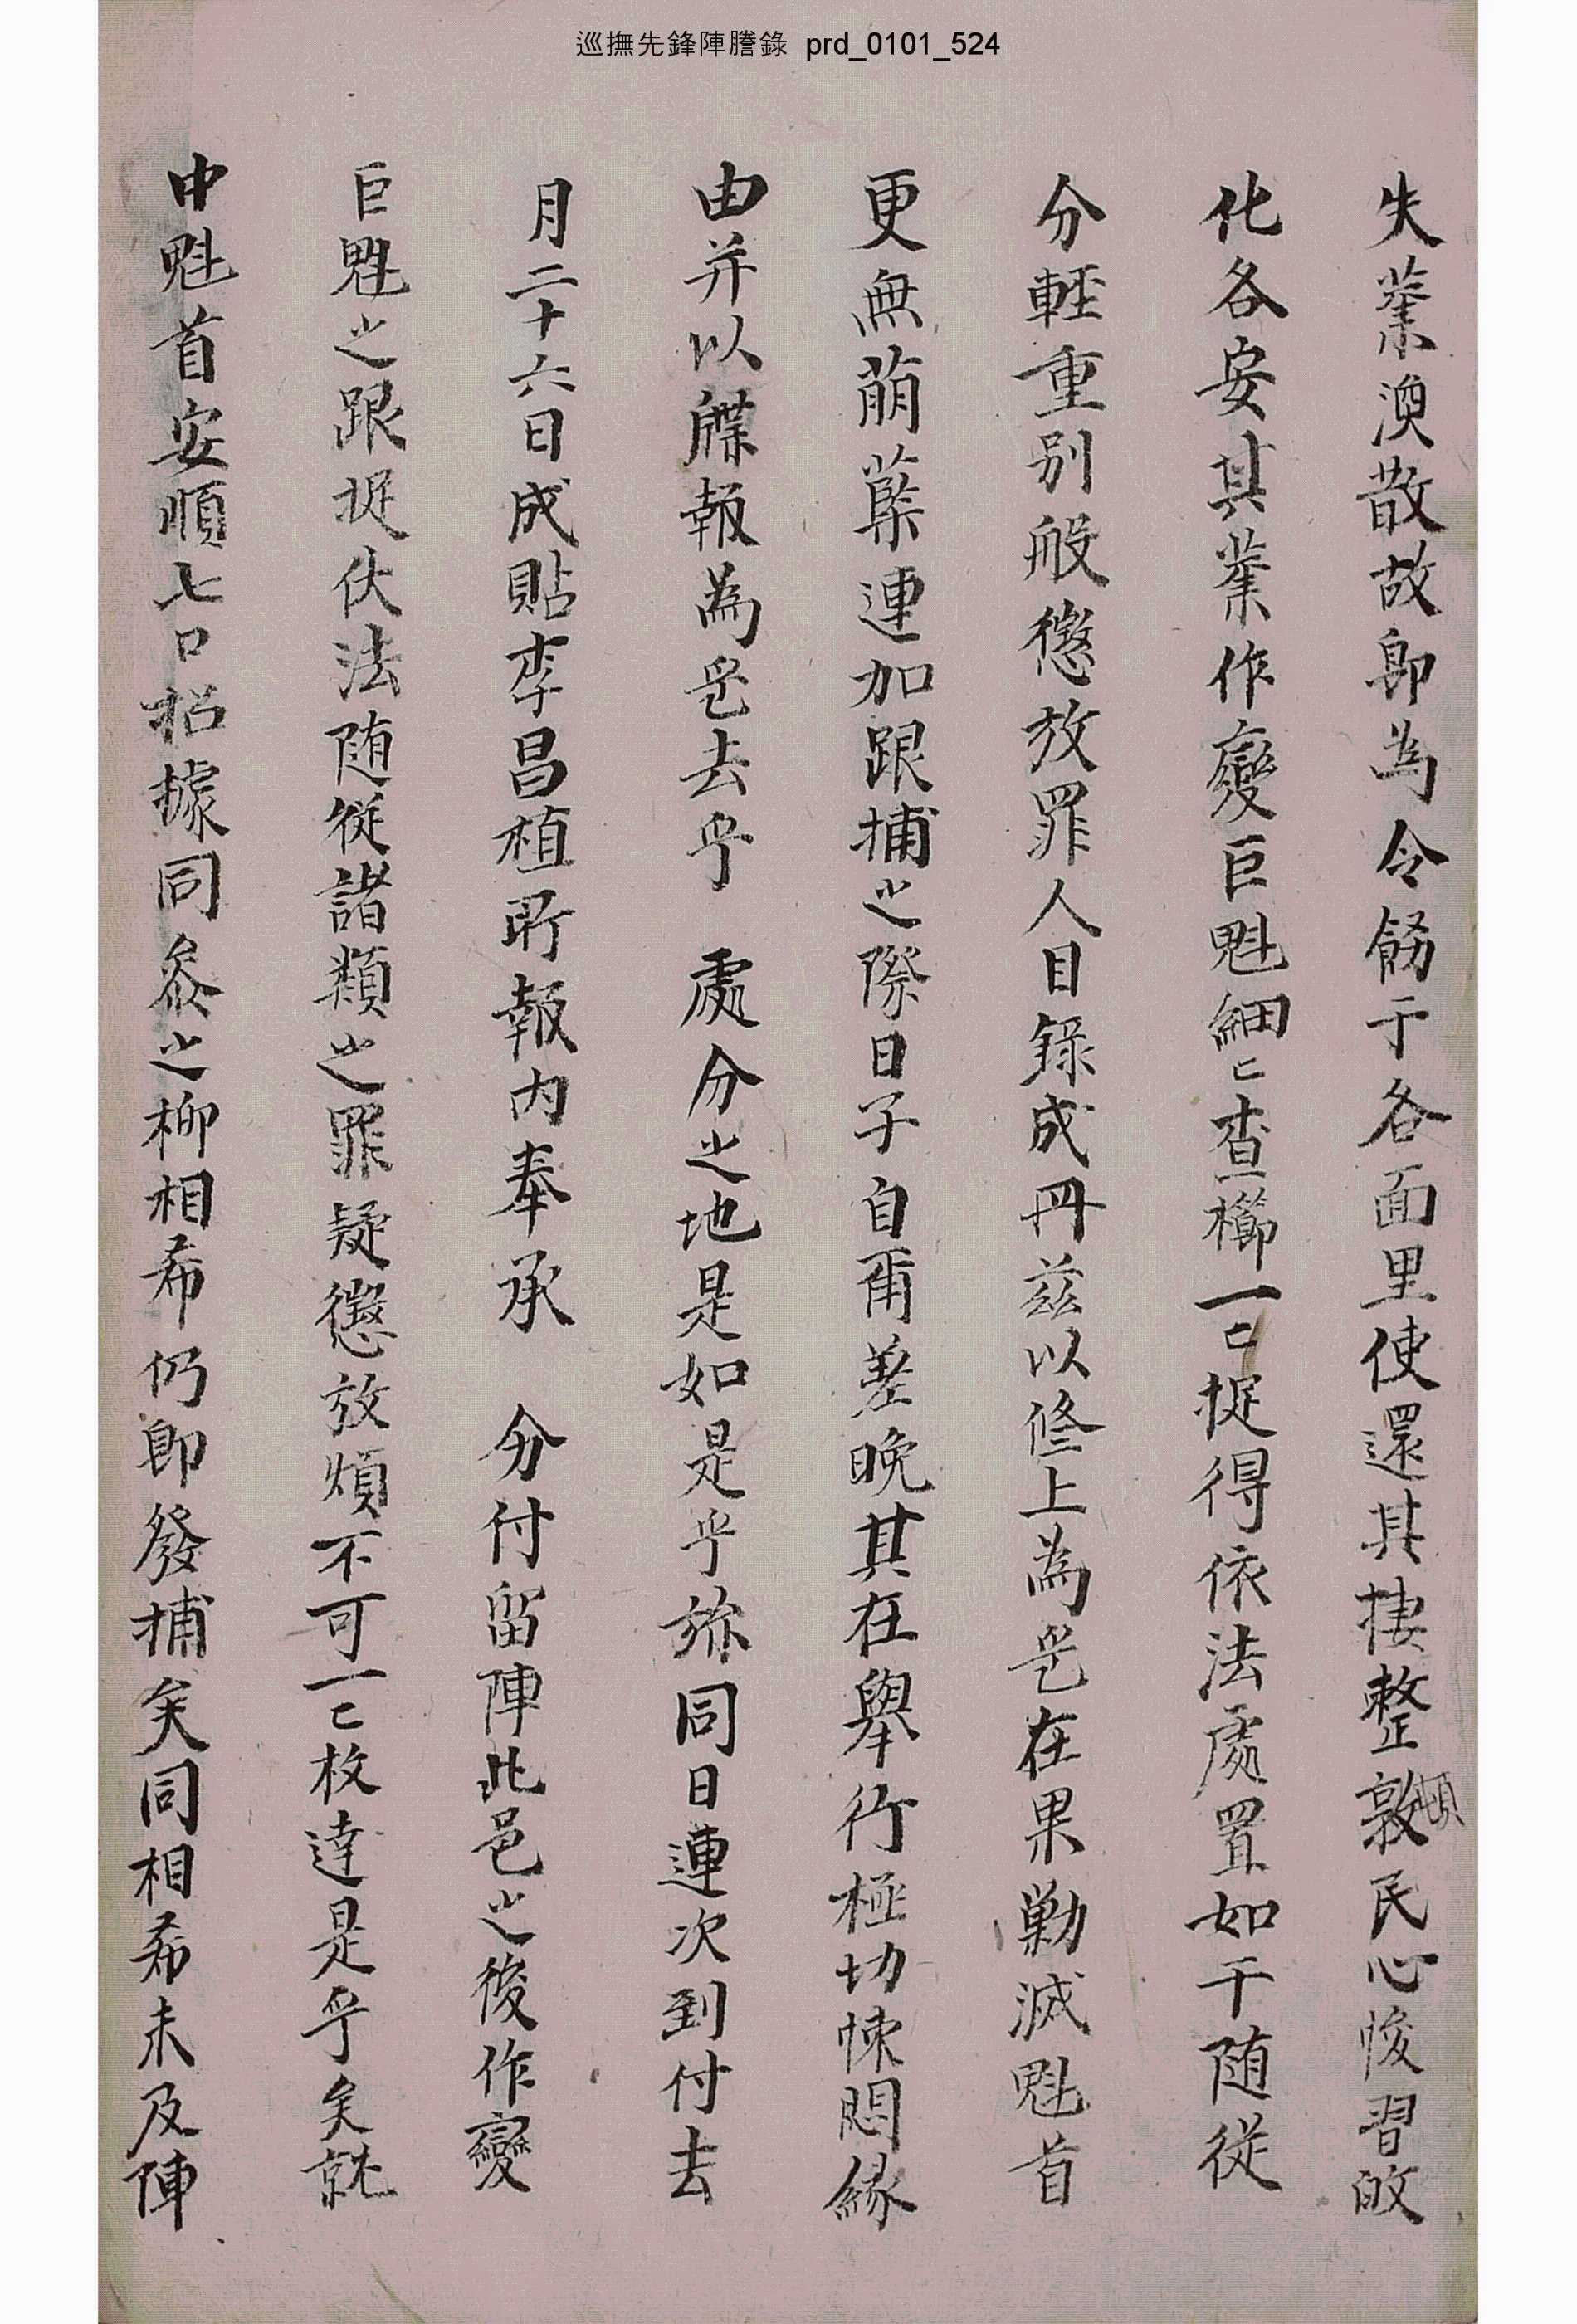 巡撫先鋒陣謄錄 prd_0101_524
失業渙散故卽為令飭于各面里使還其捿整敦頓民心悛習攸
化各安其業作變巨魁細〻查櫛一〻捉得依法處置如干随從
分輕重別般懲放罪人目錄成冊玆以修上為㫆在果勦滅魁首
更無萠蘖連加跟捕之際日子自甭差晚其在舉行極切悚悶緣
由并以牒報為㫆去乎 處分之地是如是乎旀同日連次到付去
月二十六日成貼李昌植所報內奉承 分付留陣此邑之後作變
巨魁之跟捉伏法随從諸類之罪疑懲放煩不可一〻枚達是乎矣就
中魁首安順七口招據同叅之柳相希仍卽發捕矣同相希未及陣